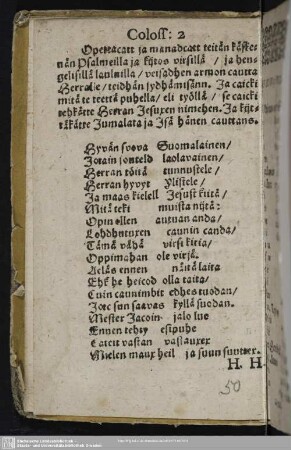 Coloss: 2
Opettacatt ja manadcatt teitän käske-
nän Psalmeilla ja kijtos virsillä / ja hen-
gelisillä lauluilla / veisadhen armon cautta
Herralle / teidhän sydhämisänn. Ja caicki
mitä te teettä puhella / eli työllä / se caicki
tehkätte Herran Jesuxen nimehen. Ja kijt-
täkätte Jumalata ja Isä hänen cauttans.
Hyvän soova Suomalainen /
Jotain jonteld laolavainen /
Herran töitä tunnustele /
Herran hyvyt Ylistele /
Ja maas kielell Jesust kiitä /
Mitä teki muista nijtä:
Opin ollen autuan anda /
Lohdhutuxen caunin canda /
Tämä vähä virsi kitia /
Oppimahan ole virjä.
Aeläs ennen näitä laita
Ehk he heicod olla taita /
Cuin caunimbit edhes tuodan /
Jotc sun saavas kyllä suodan.
Mester Jacoin jalo luo
Ennen tehty esipuhe
Lateit vastan vastauxex
Mielen maux heil ja suun suutuex.
H. H.
50